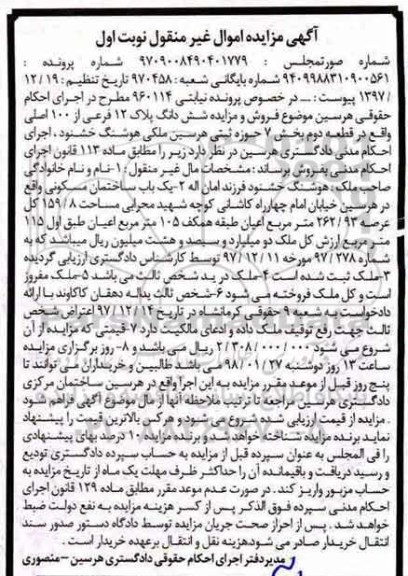 آگهی مزایده اموال غیر منقول نوبت اول
شماره صورتمجلس : ۹۷۰۹۰۰۸۴۹۰۴۰۱۷۷۹ شماره پرونده :
۹۴۰۹۹۸۸۳۱۰۹۰۰۵۶۱ شماره بایگانی شعبه : ۹۷۰۴۵۸ تاریخ تنظیم : ۱۹ / ۱۲
/ ۱۳۹۷ پیوست : ــ در خصوص پرونده نیابتی ۹۶۰۱۱۴ مطرح در اجرای احکام
حقوقی هرسین موضوع فروش و مزایده شش دانگ پلاک ۱۲ فرعی از ۱۰۰ اصلی
واقع در قطعه دوم بخش ۷ حوزه ثبتی هرسین ملکی هوشنگ خشنود ، اجرای
احکام مدنی دادگستری هرسین در نظر دارد زیر را مطابق ماده ۱۱۳ قانون اجرای
احکام مدنی بفروش برساند : مشخصات مال غیر منقول : ۱-نام و نام خانوادگی
صاحب ملک : هوشنگ خشنود فرزند امان اله ۲-یک باب ساختمان مسکونی واقع
در هرسین خیابان امام چهارراه کاشانی کوچه شهید محرابی مساحت ۸ / ۱۵۹ کل
عرصه ۹۳ / ۲۶۲ متر مربع اعیان طبقه همکف ۱۰۵ متر مربع اعیان طبق اول ۱۱۵
متر مربع ارزش کل ملک دو میلیارد و سیصد و هشت میلیون ریال میباشد که به
شماره ۲۷۸ / ۹۷ مورخه ۱۱ / ۱۲ / ۹۷ توسط کارشناس دادگستری ارزیابی گردیده
۳-ملک ثبت شده است ۴-ملک در ید شخص ثالث می باشد ۵-ملک مفروز
است و کل ملک فروخته می شود ۶-شخص ثالث یداله دهقان کاکاوند با ارائه
دادخواست به شعبه ۹ حقوقی کرمانشاه در تاریخ ۱۲ / ۱۱ / ۹۷ اعتراض شخص
ثالث جهت رفع توقیف ملک داده و ادعای مالکیت دارد ۷-قیمتی که مزایده از آن
شروع می شود ۲/۳۰۸/۰۰۰/۰۰۰ ریال می باشد و ۸- روز برگزاری مزایده
ساعت ۱۳ روز دوشنبه ۲۷ / ۰۱ / ۹۸ می باشد طالبین و خریداران می توانند تا
پنج روز قبل از موعد مقرر مزایده به این اجرا واقع در هرسین ساختمان مرکزی
دادگستری هرسین مراجعه تا ترتیب ملاحظه آنها از مال موضوع آگهی فراهم شود
. مزایده از قیمت ارزیابی شده شروع می شود و هر کس بالاترین قیمت را پیشنهاد
نماید برنده مزایده شناخته خواهد شد و برنده مزایده ۱۰ درصد بهای پیشنهادی
را فی المجلس به عنوان سپرده قبل از مزایده به حساب سپرده دادگستری تودیع
و رسید دریافت و باقیمانده آن را حداکثر ظرف مهلت یک ماه از تاریخ مزایده به
حساب مزبور واریز کند . در صورت عدم موعد مقرر مطابق ماده ۱۲۹ قانون اجرای
احکام مدنی سپرده فوق الذکر پس از کسر هزینه مزایده به نفع دولت ضبط
خواهد شد . پس از احراز صحت جریان مزایده توسط دادگاه دستور صدور سند
انتقال خریدار صادر می شود هزینه نقل و انتقال برعهده خریدار است .
مدیر دفتر اجرای احکام حقوقی دادگستری هرسین – منصوری